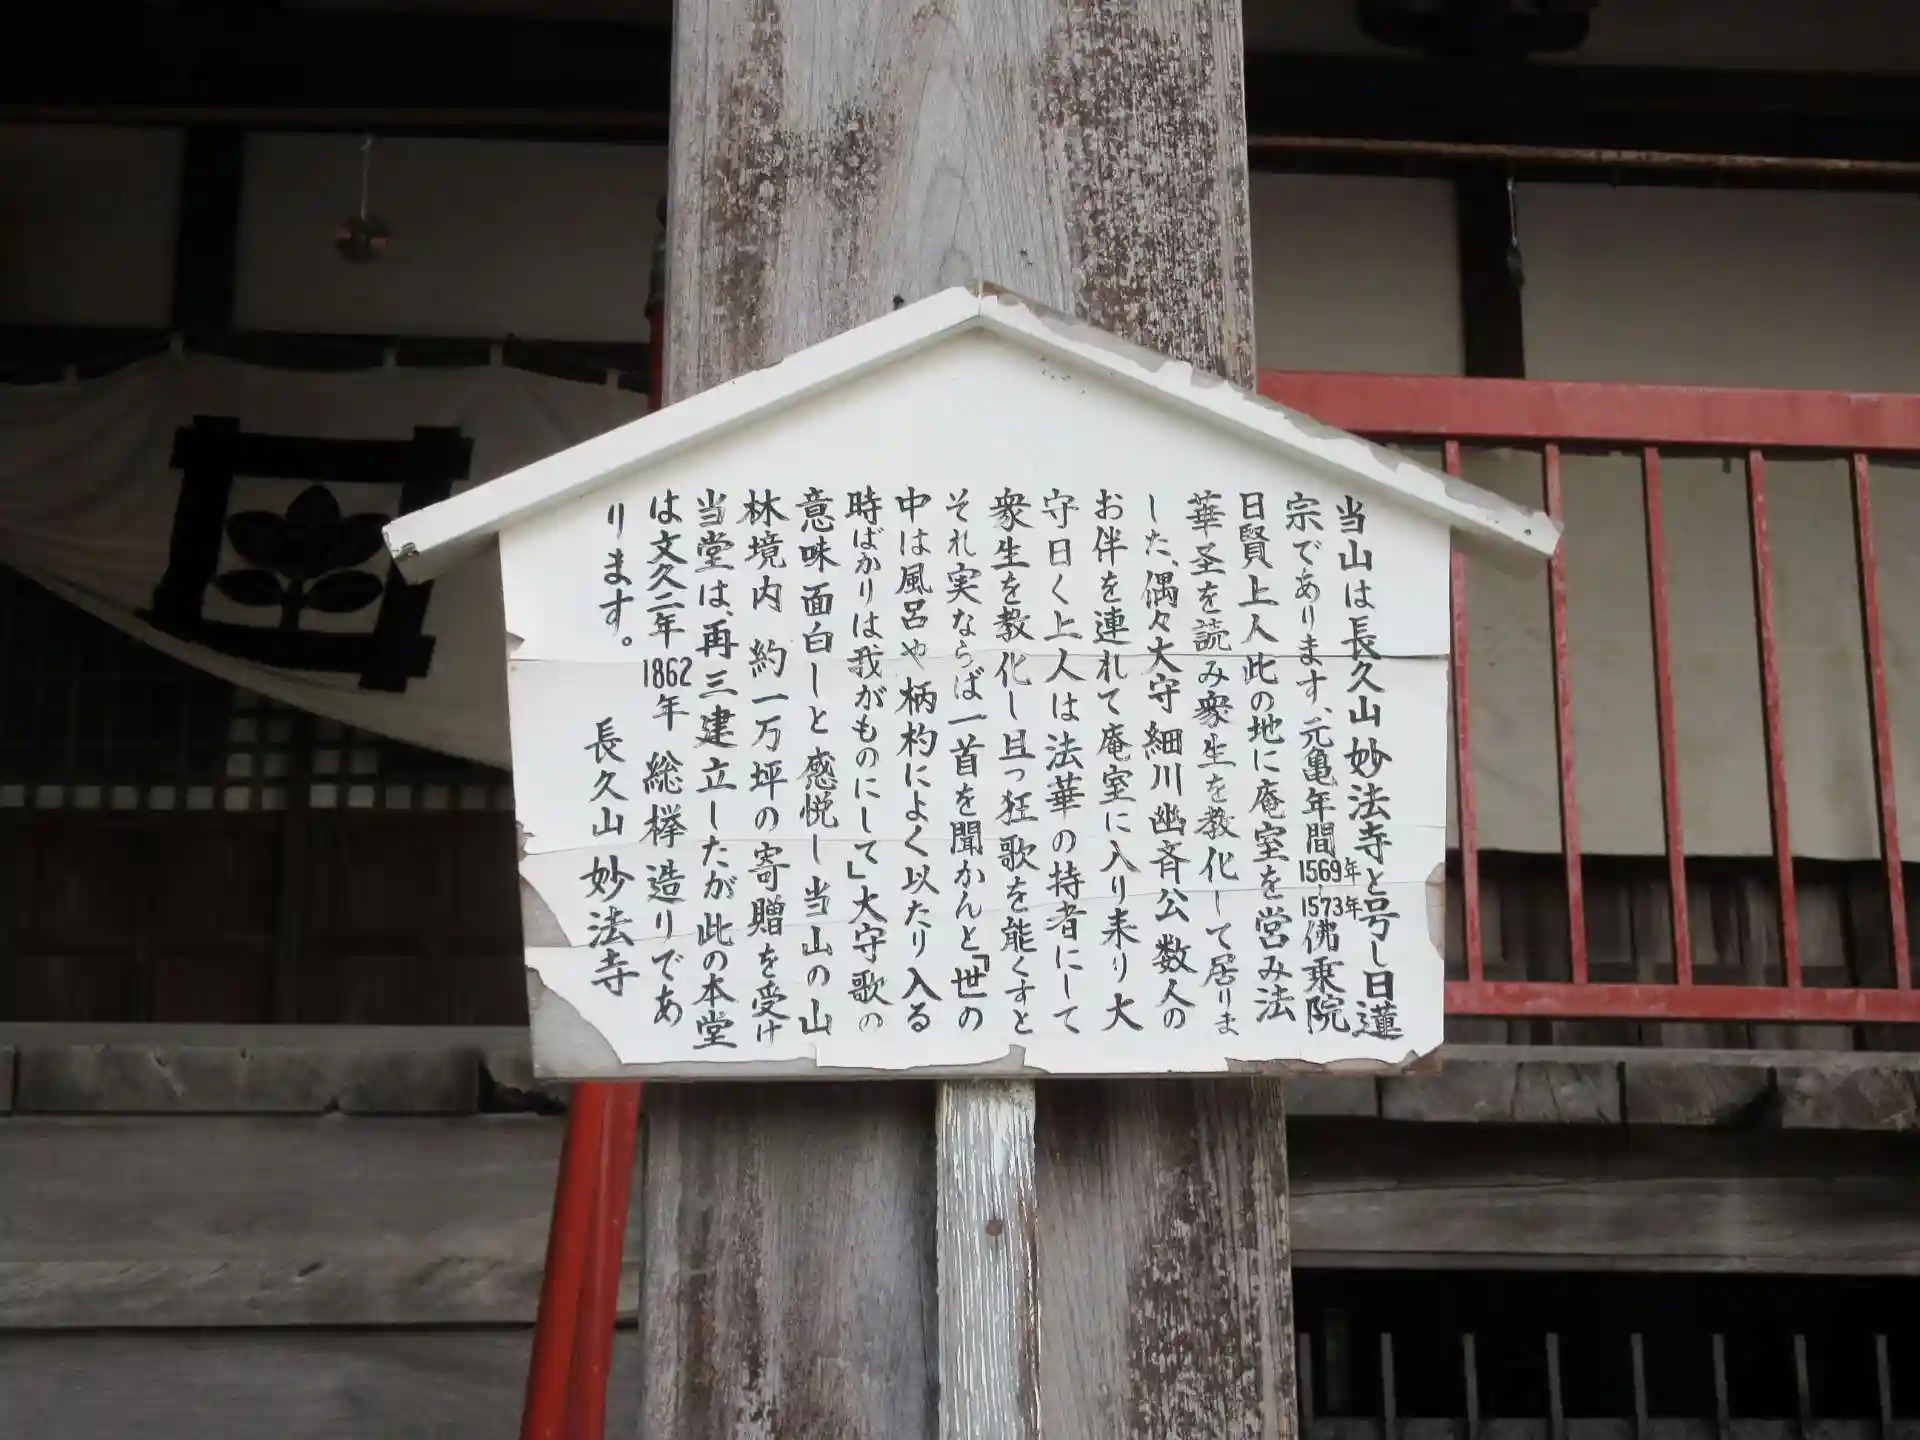 当山は長久山妙法寺と号し日蓮
宗であります、元亀年間1569年~1573年佛乗院
日賢上人此の地に庵室を営み法
華圣を読み衆生を教化して居りま
した、偶々大守 細川幽斉公 数人の
お伴を連れて庵室に入り来り大
守曰く上人は法華の持者にして
衆生を教化し且つ狂歌を能くすと
それ実ならば一首を聞かんと「世の
中は風呂や柄杓によく以たり入る
時ばかりは我がものにして」大守歌の
意味面白しと感悦し当山の山
林境内 約一万坪の寄贈を受け
当堂は、再三建立したが此の本堂
は文久二年1862年 総欅造りであ
ります。
長久山 妙法寺